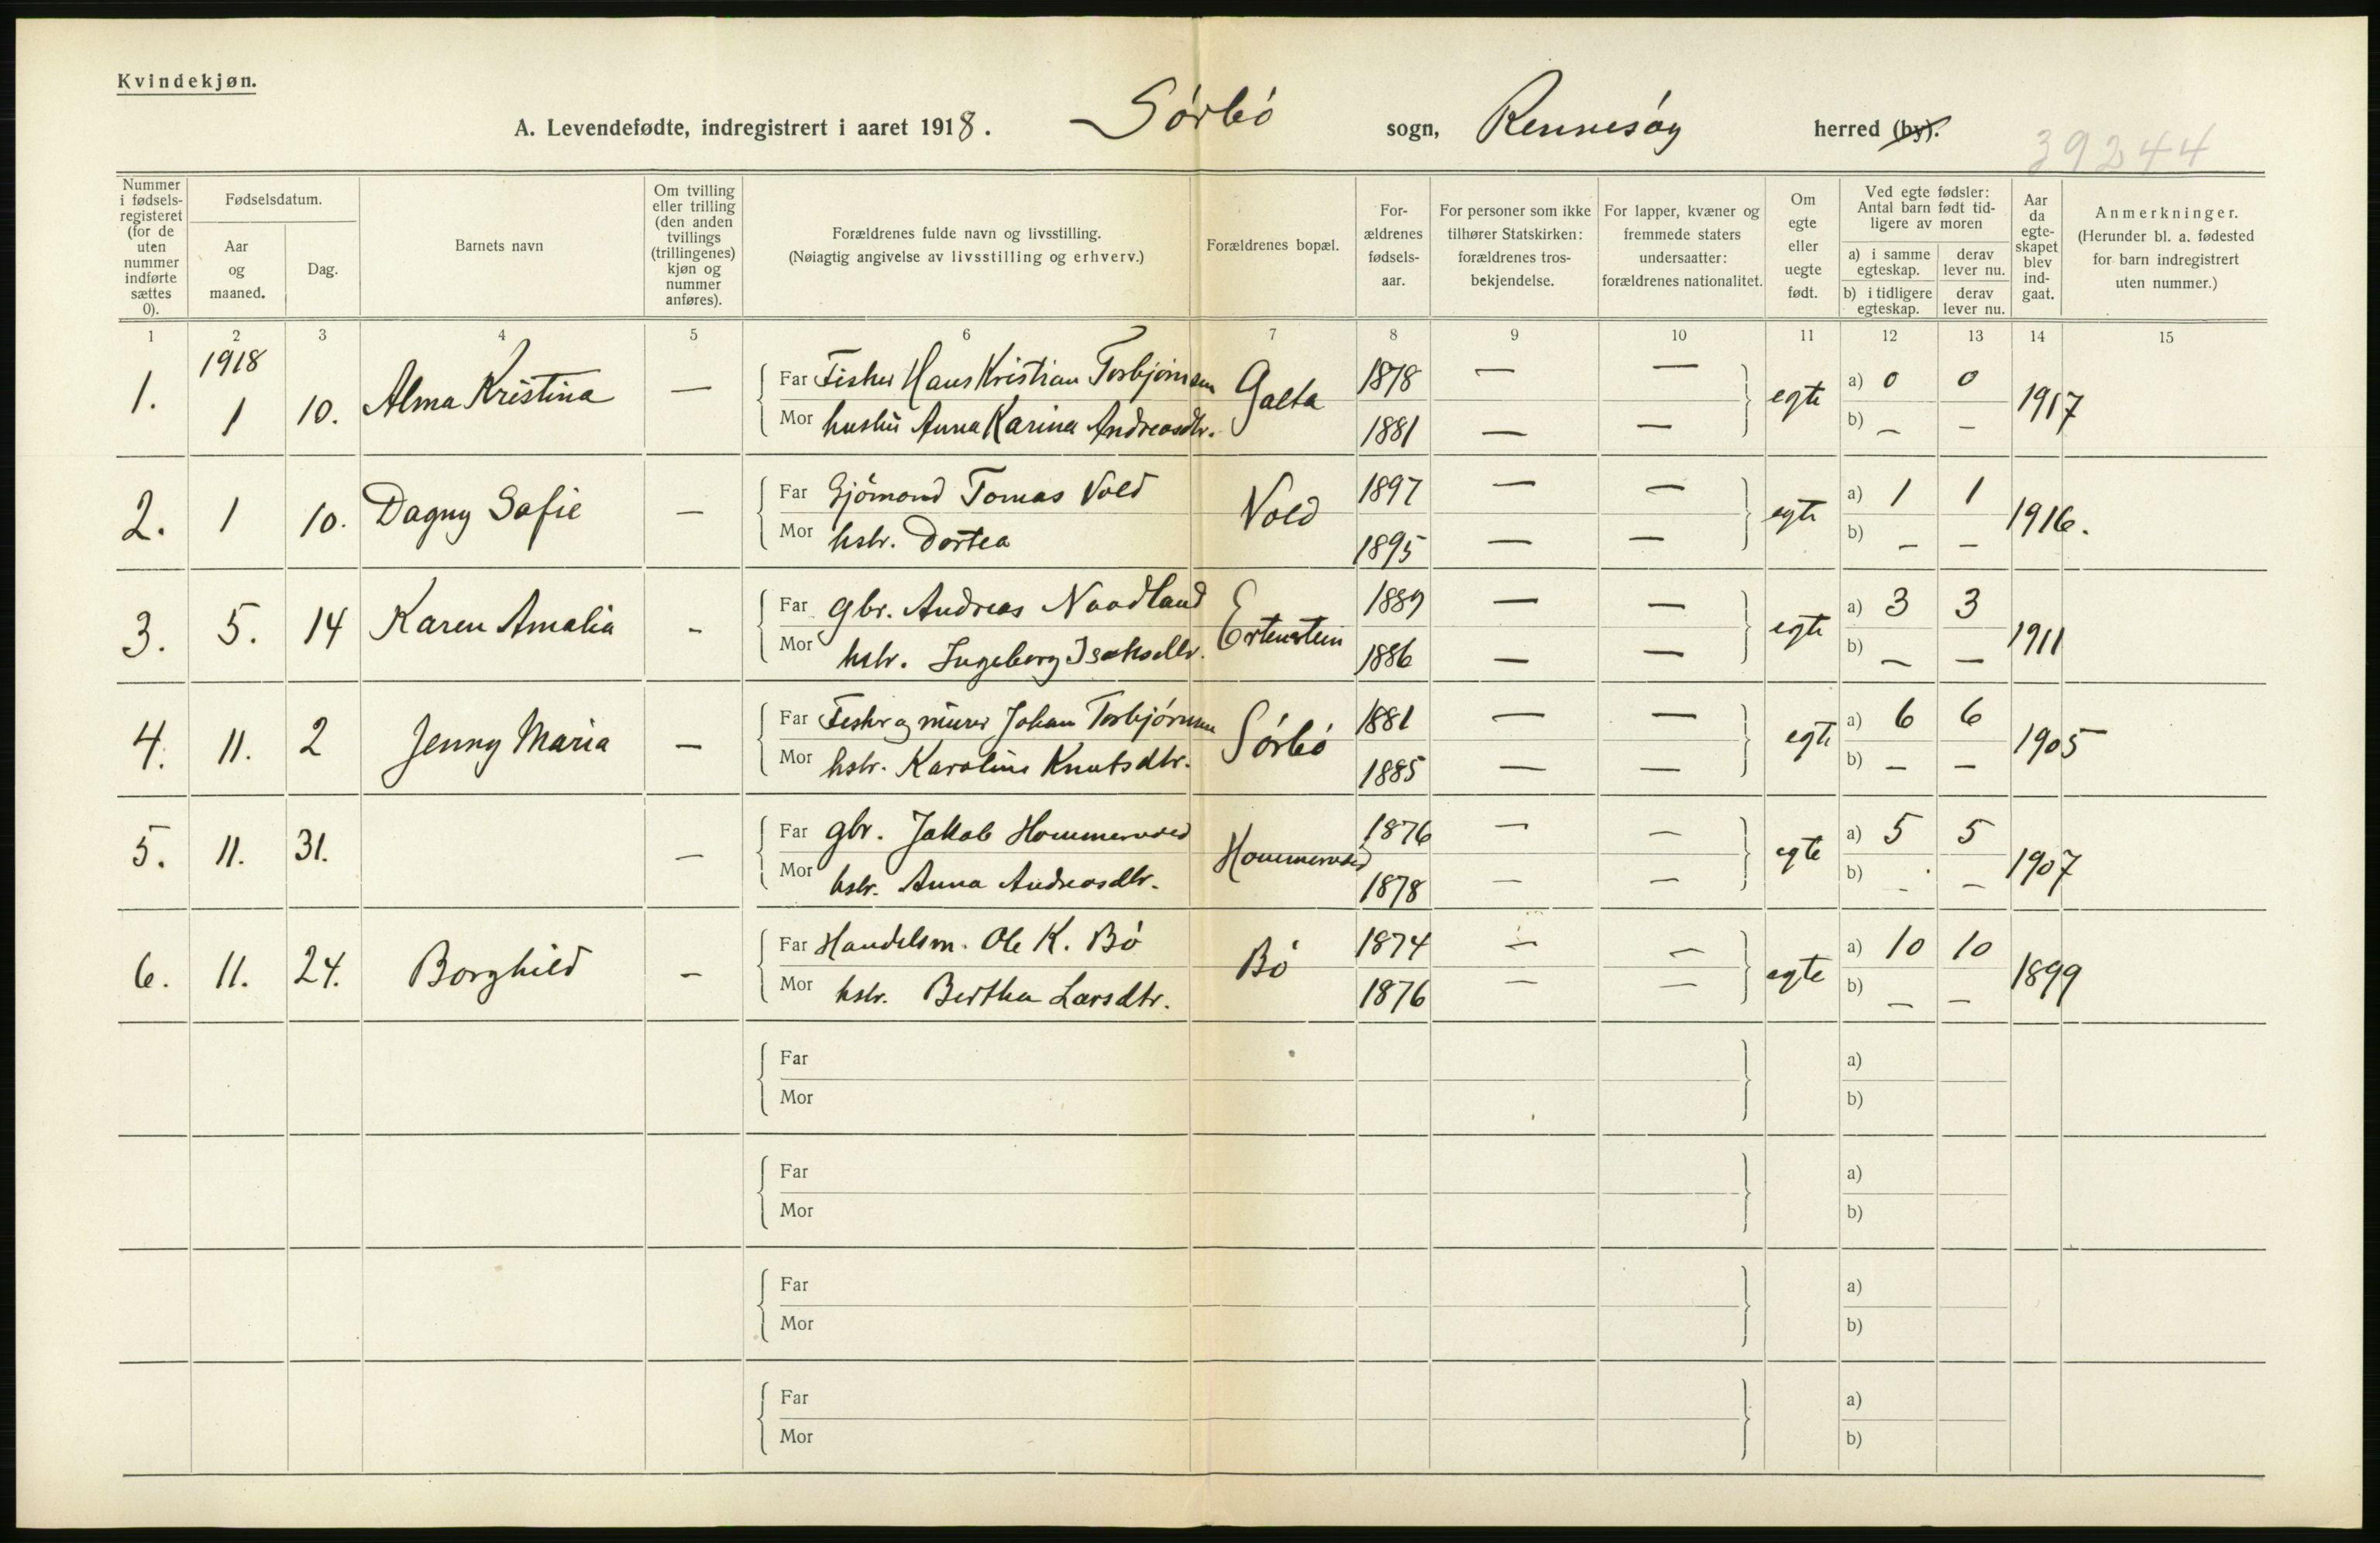 Kvindekjøn.
A. Levendefødte, indregistrert i aaret 1918. Sørbø sogn, Rennesøy herred (by).
39244
Nummer i fødselsregisteret (for de uten nummer indførte sættes 0).
Fødselsdatum.
Aar og maaned.
Dag.
Barnets navn
Om tvilling eller trilling (den anden tvillings (trillingenes) kjøn og nummer anføres).
Forældrenes fulde navn og livsstilling.
(Nøiagtig angivelse av livsstilling og erhverv.)
Forældrenes bopæl.
Forældrenes fødselsaar.
For personer som ikke tilhører Statskirken: forældrenes trosbekjendelse.
For lapper, kvæner og fremmede staters undersaatter: forældrenes nationalitet.
Om egte eller uegte født.
Ved egte fødsler: Antal barn født tidligere av moren
a) i samme egteskap. derav lever nu.
b) i tidligere egteskap. derav lever nu.
Aar da egteskapet blev indgaat.
Anmerkninger.
(Herunder bl. a. fødested for barn indregistrert uten nummer.)
1 2 3 4 5 6 7 8 9 10 11 12 13 14 15
1918
1. 1 10. Alma Kristina — Far Fisker Hans Kristian Torbjørnsen Galta 1878 — — egte a) 0 0 1917
Mor hustru Anna Karina Andreasdtr. 1881 — — b) — —
2. 1 10. Dagny Sofie — Far Sjömand Tomas Vold Vold 1897 — — egte a) 1 1 1916.
Mor hstr. Dortea 1895 — — b) — —
3. 5. 14 Karen Amalia - Far gbr. Andreas Nordland Ertenstein 1889 — — egte a) 3 3 1911
Mor hstr. Ingeborg Isaksdtr. 1886 — — b) — —
4. 11. 2 Jenny Maria — Far Fisker og murer Johan Torbjørnsen Sørbø 1881 — — egte a) 6 6 1905
Mor hstr. Karoline Knutsdtr. 1885 — — b) — —
5. 11. 31. — Far gbr. Jakob Hommersved Hommersved 1876 — — egte a) 5 5 1907
Mor hstr. Anna Andreasdtr. 1878 — — b) - —
6. 11. 24. Borghild — Far Handelsm. Ole K. Bø Bø 1874 — — egte a) 10 10 1899
Mor hstr. Bertha Larsdtr. 1876 — — b) — —
Far a)
Mor b)
Far a)
Mor b)
Far a)
Mor b)
Far a)
Mor b)